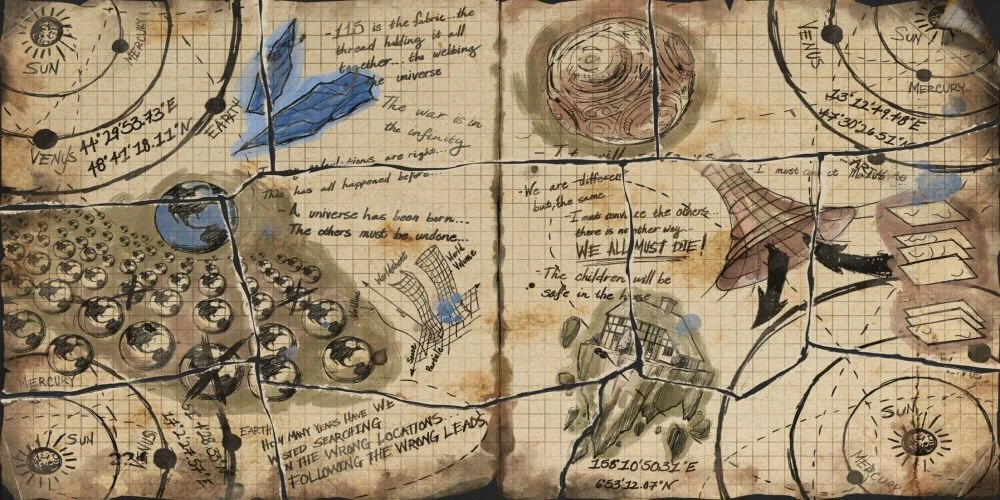 SUN
MERCURY
VENUS
EARTH
44°29'53.73"E
48°41'18.11"N
-115 is the fabric...the
thread holding it all
together... the webbing
the universe
The war is in
the infinity
are right...
This has all happened before...
A universe has been born...
The others must be undone...
World
Volume
MERCURY
SUN
VENUS
EARTH
HOW MANY YEARS HAVE WE
WASTED SEARCHING
IN THE WRONG LOCATIONS.
FOLLOWING THE WRONG LEADS.
VENUS
SUN
MERCURY
13°12'49.48"E
47°30'26.51"N
- I must
-We are different
but, the same...
-I must convince the others...
there is no other way...
WE ALL MUST DIE!
-The children will be
safe in the house
158°10'50.31"E
6°53'12.07"N
SUN
MERCURY